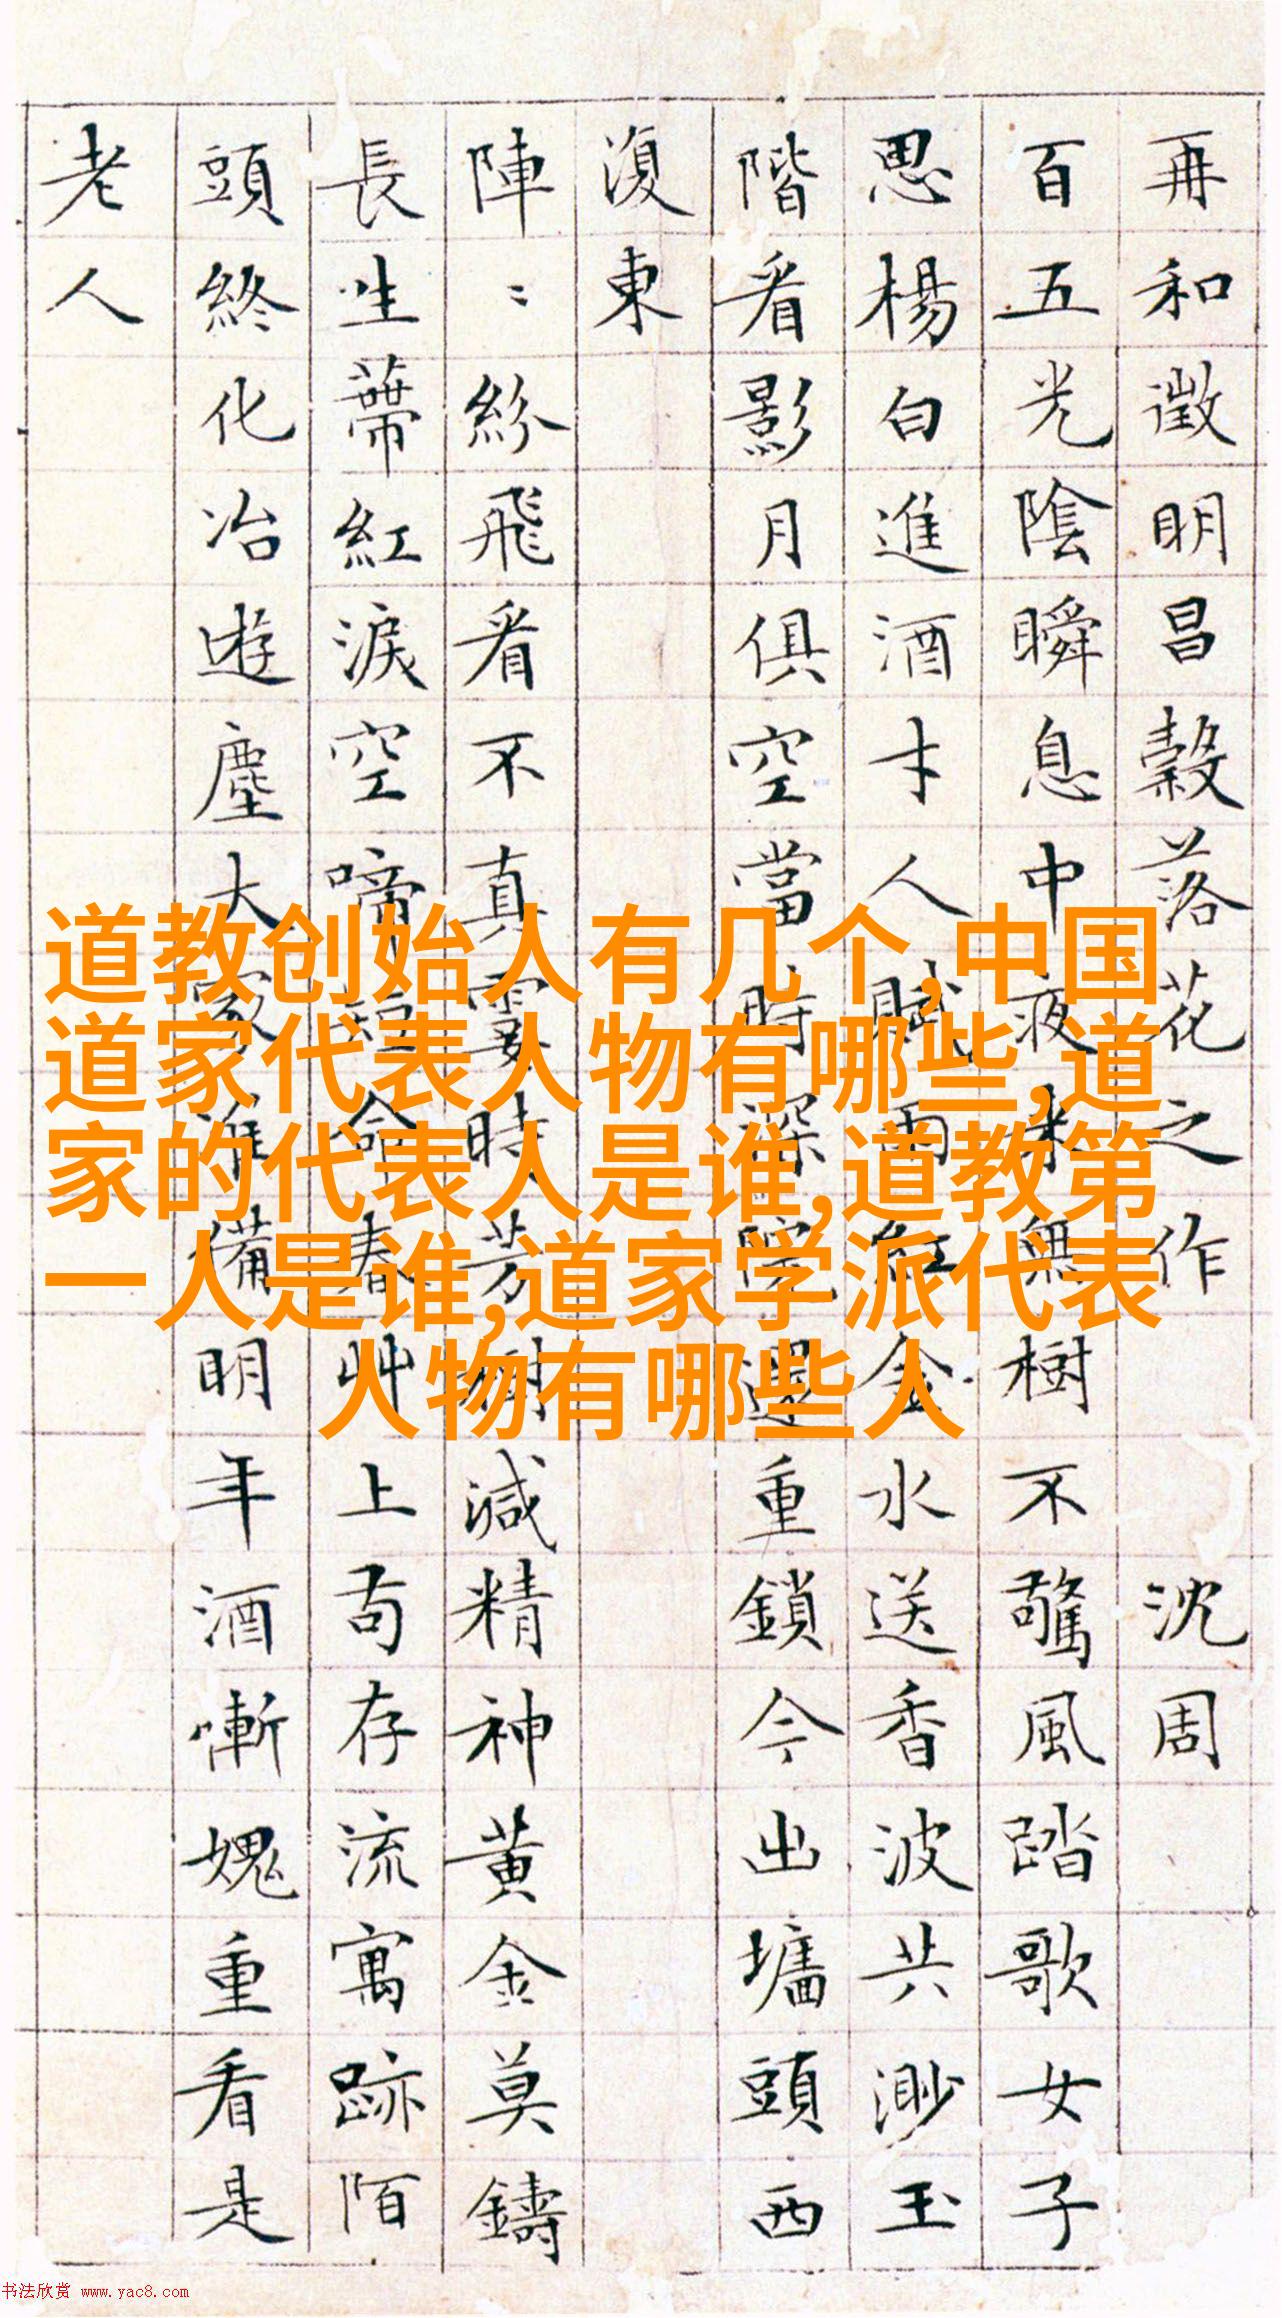 再和徵明昌穀落花之作 沈周
百五光陰瞬息中夜來無樹不驚風踏歌女子
思楊白進酒才人賦雨紅金水送香波共渺玉
階看影月俱空當時深院還重鎖今出墻頭西
復東
陣〻紛飛看不真霎時芳樹減精神黃金莫鑄
長生蒂紅淚空啼短命春艸上苟存流寓跡陌
頭終化冶遊塵大家準備明年酒慚愧重看是
老人
道教创始人有几个,中国
道家代表人物有哪些,道
家的代表人是谁,道教第
一人是谁,道家学派代表
人物有哪些人
书法欣赏 www.yac8.com